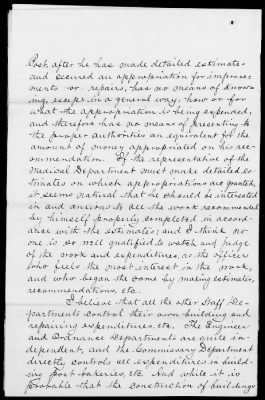 Post, after he has made detailed estimates
and secured an appropriation for improve-
ments or repairs, has no means of know-
ing, except in a general way, how or for
what the appropriation is being expended,
and therefore has no means of presenting to
the proper authorities an equivalent for the
amount of money appropriated on his rec-
ommendation. If the representative of the
Medical Department must make detailed es-
timates on which appropriations are granted,
it seems natural that he should be interested
in and anxious to see the work recommended
by himself properly completed in accord-
ance with the estimates; and I think no
one is so well qualified to watch and judge
of the work and expenditures, as the officer
who feels the most interest in the work,
and who began the same by making estimates,
recommendations, etc.
I believe that all the other Staff De-
partments control their own building and
repairing expenditures, etc. The Engineer
and Ordnance Departments are quite in-
dependent, and the Commissary Department
directly controls all expenditures in build-
ing Post bakeries, etc. And while it is
probable that the construction of buildings